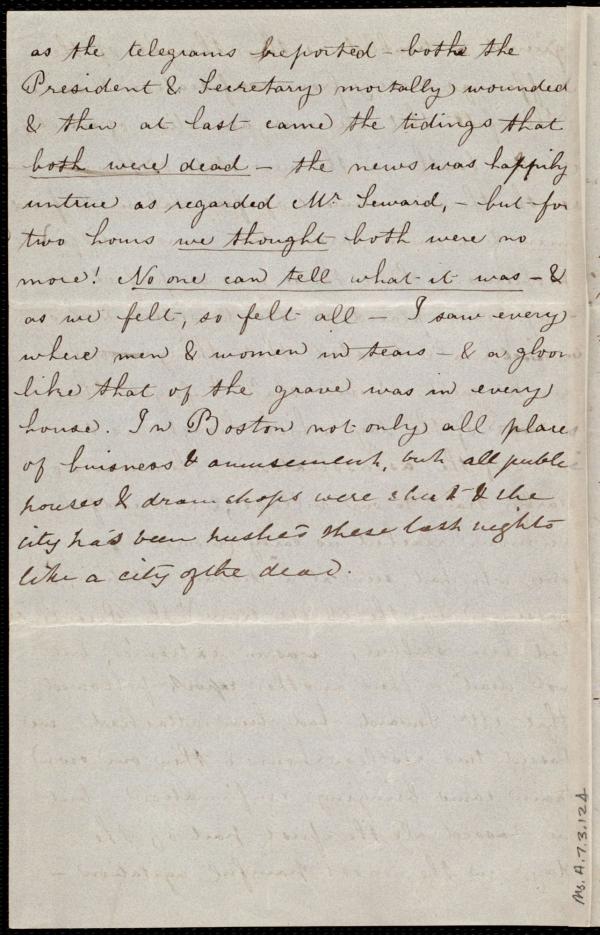 as the telegrams reported - both the
President & Secretary mortally wounded
& then at last came the tidings that
both were dead - the news was happily
untrue as regarded Mr Seward, - but for
two hours we thought both were no
more! No one can tell what it was - &
as we felt, so felt all - I saw every
where men & women in tears - & a gloom
like that of the grave was in every
house. In Boston not only all place
of buisness & amusement, but all public
houses & dram shops were shut & the
city has been hushed these last nights
like a city of the dead.
Ms. A. 7. 3. 12A